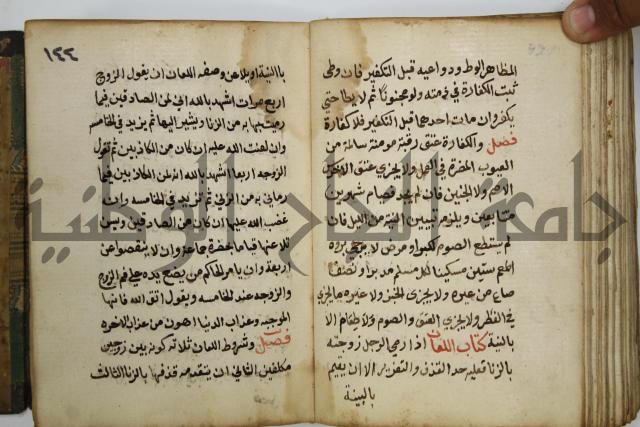 المظاهر الوطء ودواعيه قبل التكفير فان وطى
ثبت الكفارة في ذمته ولو مجنونا ثم لا يطا حتى
يكفر وان مات احدهما قبل التكفير فلا كفارة
فصل والكفارة عتق رقبة مومنة سالمة من
العيوب المضرة في العمل ولا يجزي عتق الاخرس
الاصم ولا الجنين فان لم يجد فصام شهرين
متتابعين ويلزمه تبييت النية من الليل فان
لم يستطع الصوم لكبر او مرض لا يرجى بروه
اطعم ستين مسكينا لكل مسلم مد بر او نصف
صاع من غيره ولا يجزى الخبز ولا غيره مما يجزي
في الفطر ولا يجزي العتق والصوم والاطعام الا
بالنية كتاب اللعان اذا رمى الرجل زوجته
بالزنا فعليه حد القذف والتعزير الا ان يقيم
بالبينة
١٤٤
بالنية او يلاعن وصفة اللعان ان يقول الزوج
اربع مرات اشهد بالله اني لمن الصادقين فيما
رميتها به من الزنا ويشير اليها ثم يزيد في الخامسة
وان لعنت الله عليه ان كان من الكاذبين ثم تقول
الزوجة اربعا اشهد بالله انه لمن الكاذبين فيما
رماني به من الزنى ثم تزيد في الخامسة وان
غضب الله عليها ان كان من الصادقين وسن
تلاعنهما قياما بحضرة جماعة وان لا ينقصوا عن
اربعة وان يامر الحاكم من يضع يده على فم الزوج
والزوجة عند الخامسة ويقول اتق الله فانها
الموجبة وعذاب الدنيا اهون من عذاب الاخرة
فصل وشروط اللعان ثلاثة كونه بين زوجين
مكلفين الثاني ان يتقدمه قذفها بالزنا الثالث
جامعة النجاح الوطنية